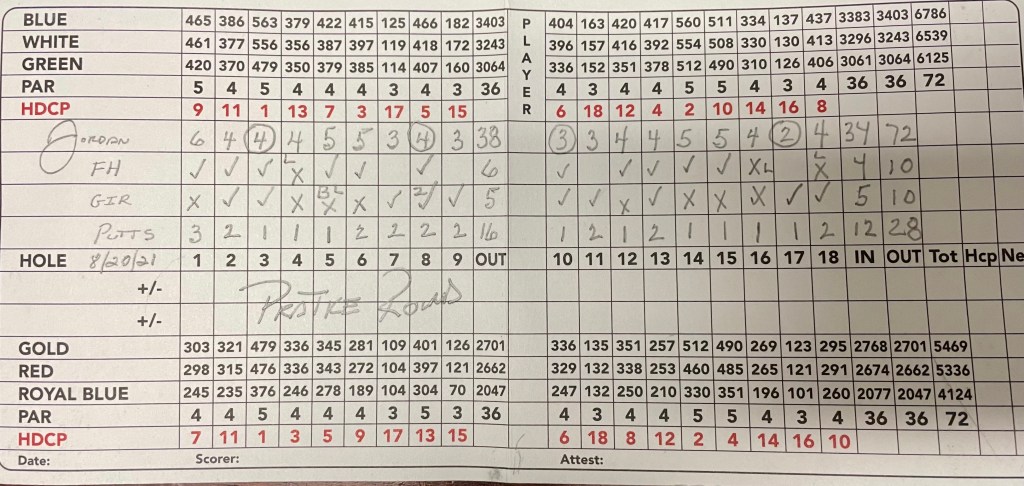 BLUE 465 386 563 379 422 415 125 466 182 3403 PLAYER 404 163 420 417 560 511 334 137 437 3383 3403 6786
WHITE 461 377 556 356 387 397 119 418 172 3243 396 157 416 392 554 508 330 130 413 3296 3243 6539
GREEN 420 370 479 350 379 385 114 407 160 3064 336 152 351 378 512 490 310 126 406 3061 3064 6125
PAR 5 4 5 4 4 4 3 4 3 36 4 3 4 4 5 5 4 3 4 36 36 72
HDCP 9 11 1 13 7 3 17 5 15 6 18 12 4 2 10 14 16 8
JORDAN 6 4 4 4 5 5 3 4 3 38 3 3 4 4 5 5 4 2 4 34 72
FH ✓ ✓ ✓ L X ✓ ✓ ✓ 6 ✓ ✓ ✓ ✓ ✓ XL L X 4 10
GIR X ✓ ✓ X BL X X ✓ 2/ ✓ 5 ✓ ✓ X ✓ X X X ✓ ✓ 5 10
PUTTS 3 2 1 1 1 2 2 2 2 16 1 2 1 2 1 1 1 1 2 12 28
HOLE 8/20/21 1 2 3 4 5 6 7 8 9 OUT 10 11 12 13 14 15 16 17 18 IN OUT Tot Hcp Ne
+/-
+/-
GOLD 303 321 479 336 345 281 109 401 126 2701 336 135 351 257 512 490 269 123 295 2768 2701 5469
RED 298 315 476 336 343 272 104 397 121 2662 329 132 338 253 460 485 265 121 291 2674 2662 5336
ROYAL BLUE 245 235 376 246 278 189 104 304 70 2047 247 132 250 210 330 351 196 101 260 2077 2047 4124
PAR 4 4 5 4 4 4 3 5 3 36 4 3 4 4 5 5 4 3 4 36 36 72
HDCP 7 11 1 3 5 9 17 13 15 6 18 8 12 2 4 14 16 10
Date: Scorer: Attest: